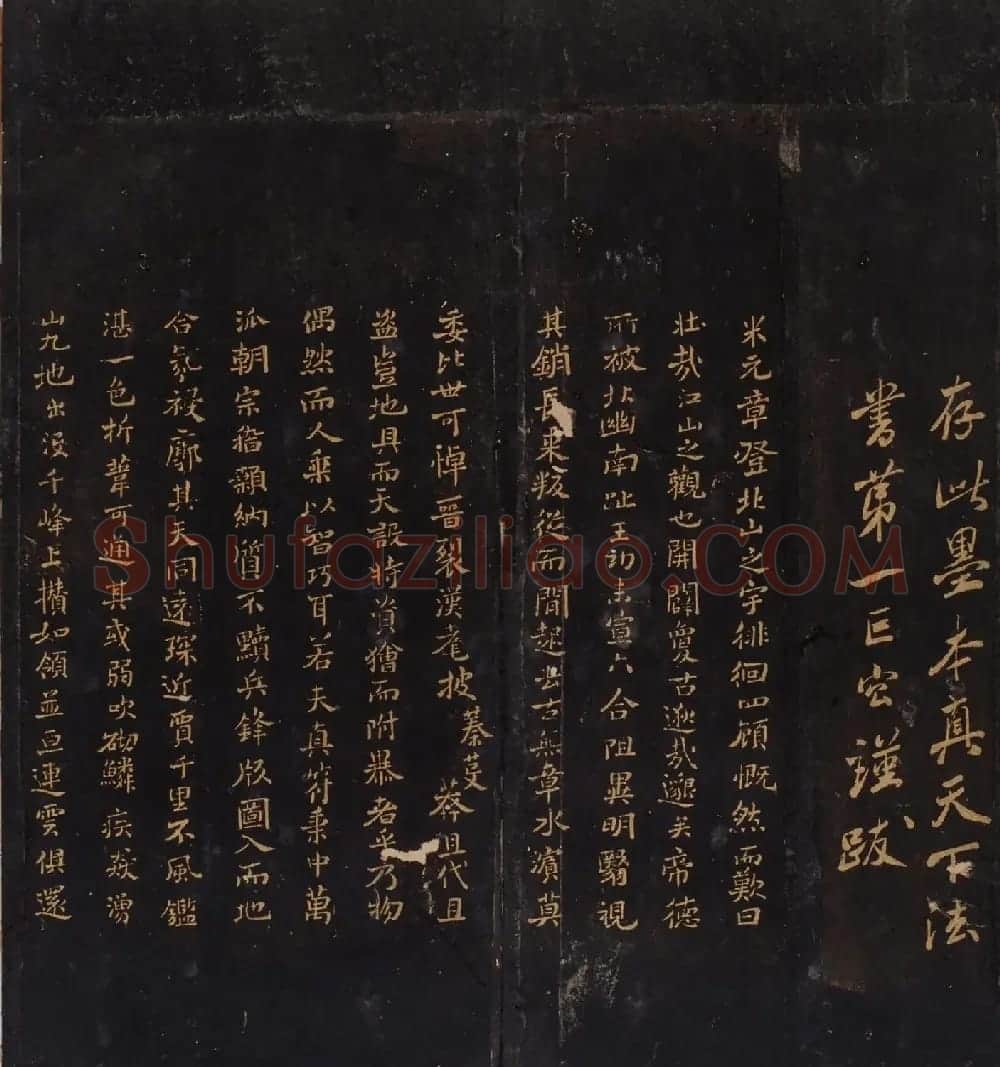 存此墨本真天下法
書第一巨容謹跋
米元章登北山之宇徘徊四顧慨然而歎曰
壯哉江山之觀也開闢夐古逖哉邈矣帝德
所被北幽南趾王初未宣六合阻異明翳視
其鎖長來叛從而間起去古無章水濱莫
委比世可悼晉裂漢耄披
蓁蔓
莽且代且
盜豈地具而天設將資獪而附暴者乎乃物
偶然而人乘以智巧耳若夫真符秉中萬
派朝宗猶顙納道不黷兵鋒版圖入而地
合氛祲廓其天同遠琛近賈千里不風鑑
湛一色折葦可通其或弱吹砌鱗疾飆湧
山九地出沒千峰上攢如領並亘連雲俱還
Shufaziliao.COM